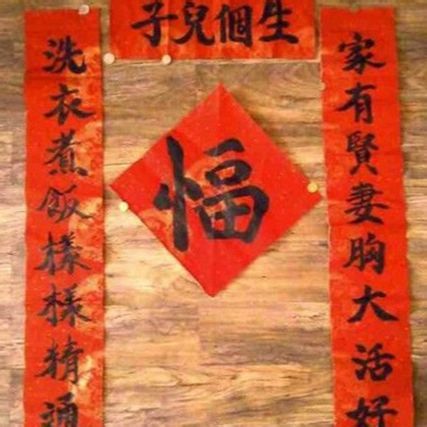 生個兒子
家有賢妻胸大活好
福
洗衣煮飯樣樣精通